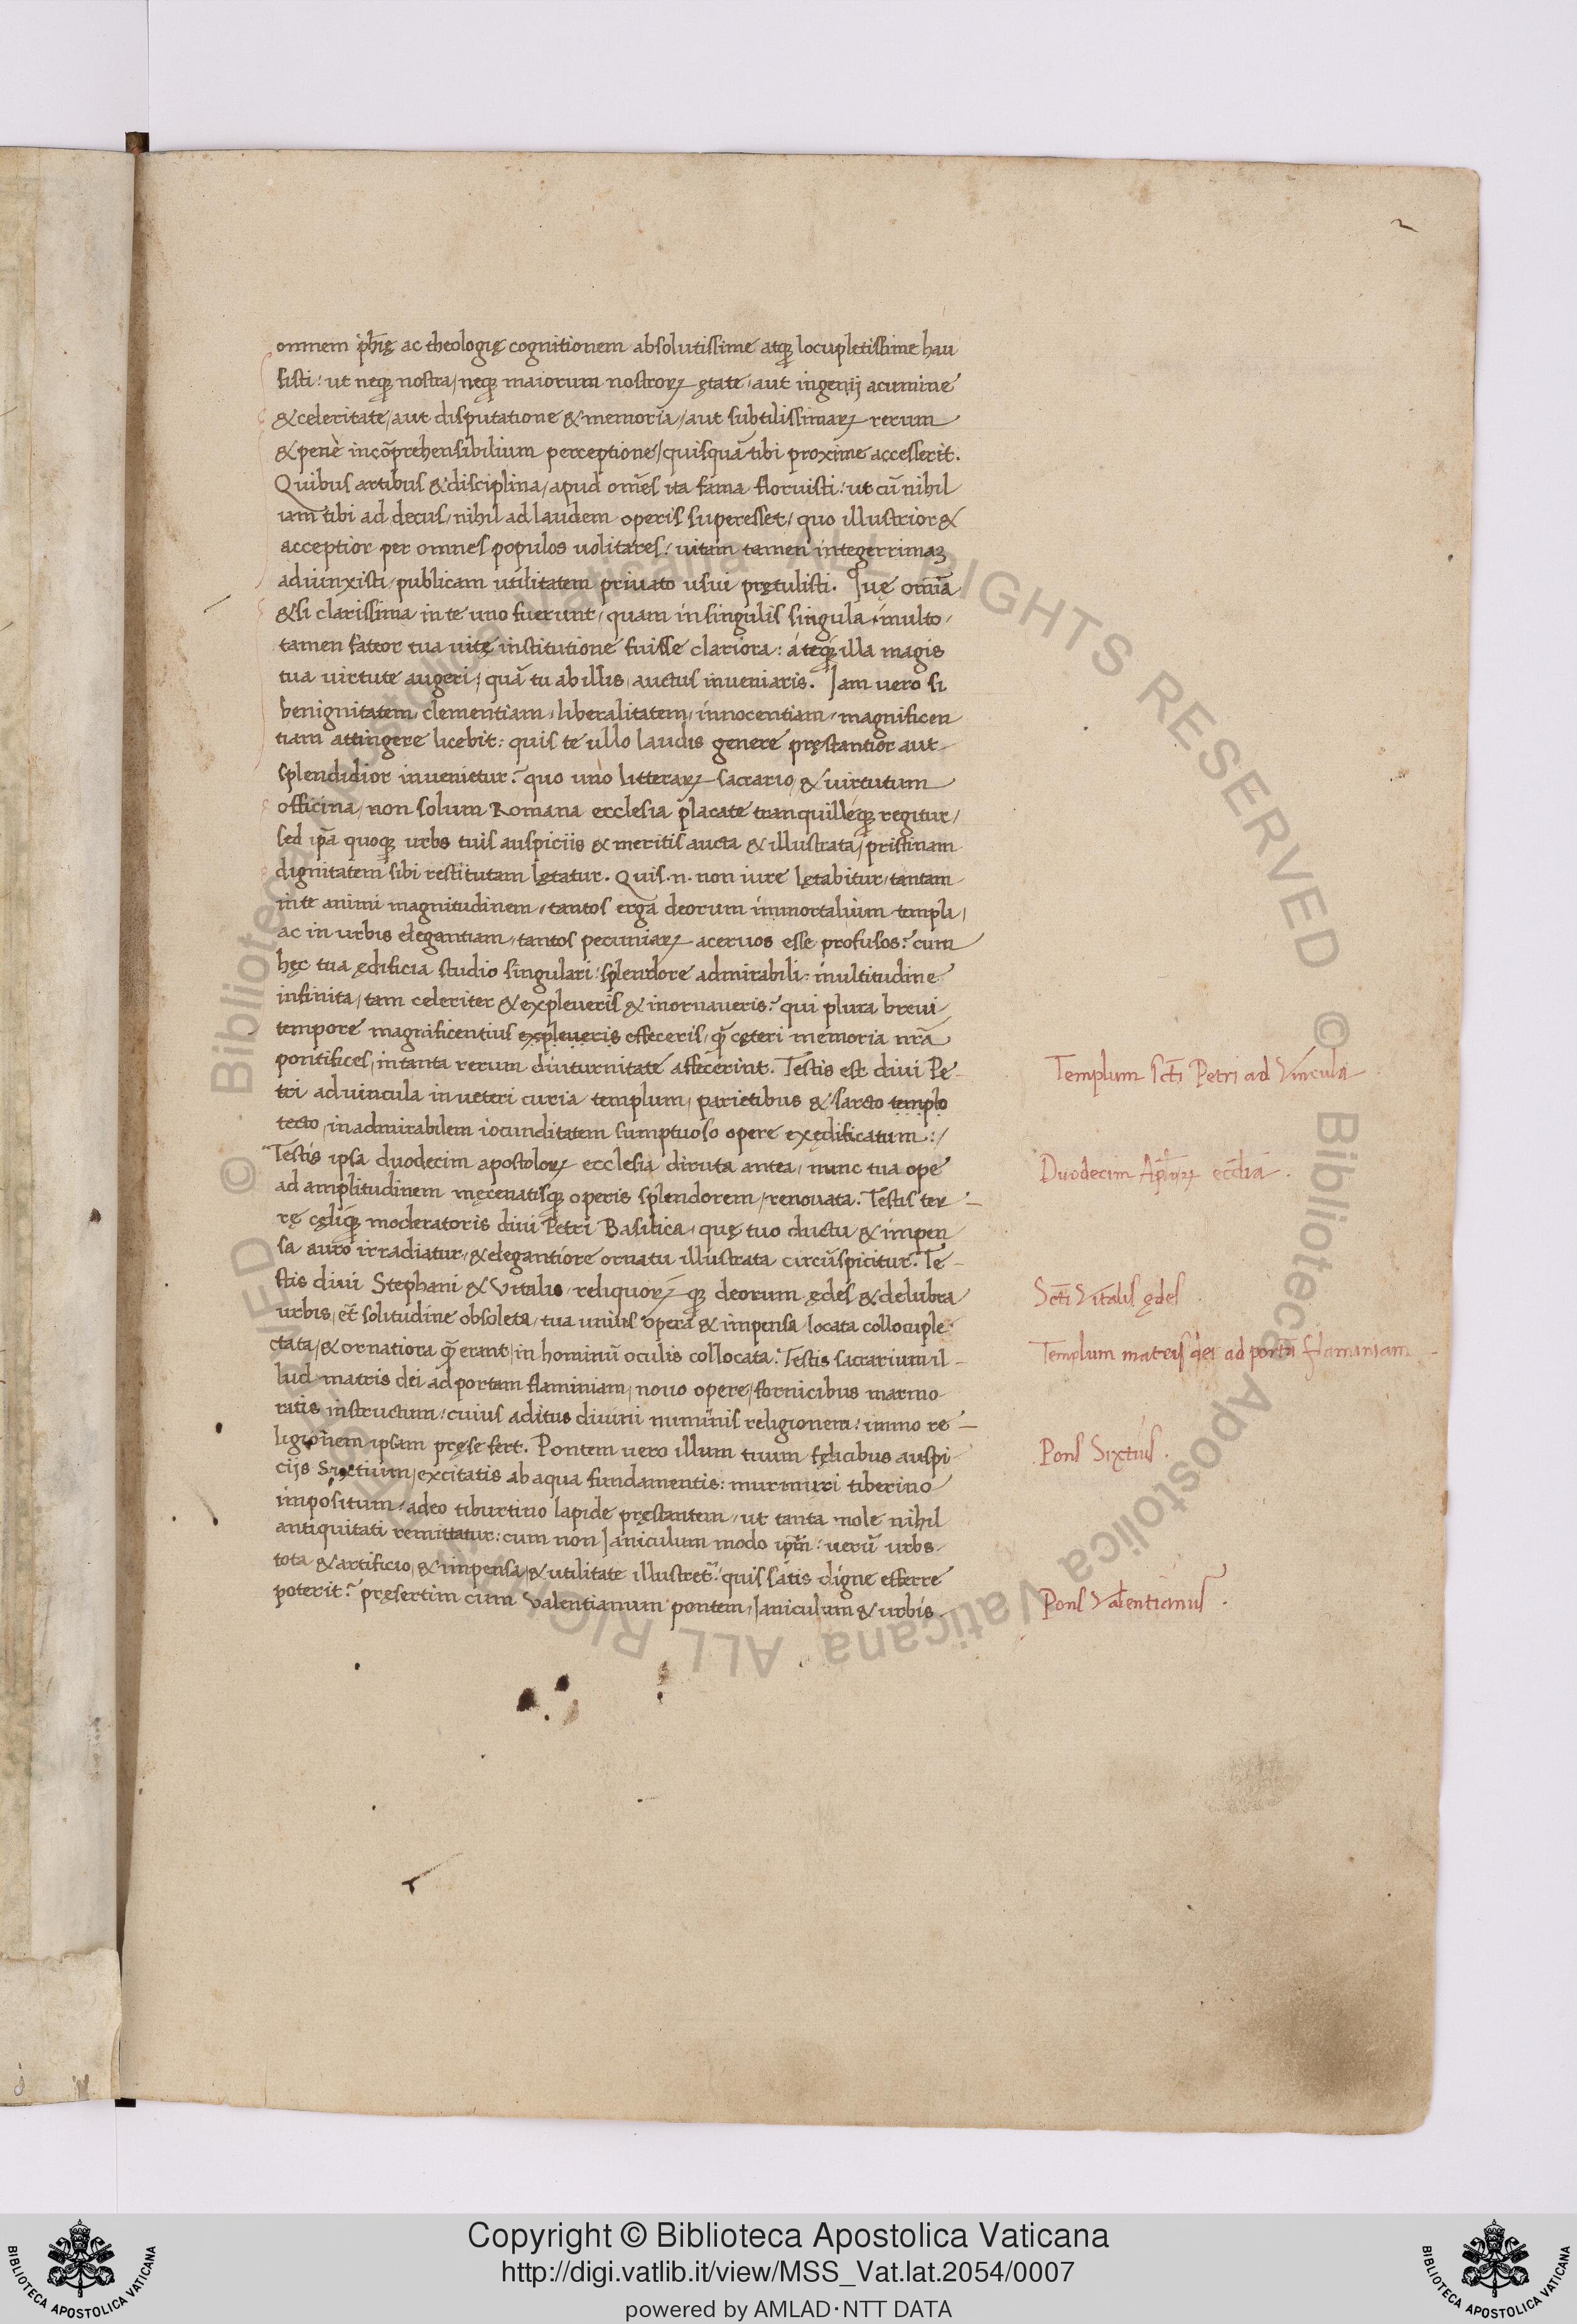 2
omnem ph̄ię ac theologię cognitionem absolutissime atq; locupletissime hau
sisti: ut neq; nostra, neq; maiorum nostroꝝ ętate, aut ingenij acumine
& celeritate, aut disputatione & memoria, aut subtilissimaꝝ rerum
& penè incōprehensibilium perceptione, quisquā tibi proxime accesserit.
Quibus artibus & disciplina, apud om̄es ita fama floruisti: ut cū nihil
iam tibi ad decus, nihil ad laudem operis superesset, quo illustrior &
acceptior per omnes populos uolitares: uitam tamen integerrimaꝫ
adiunxisti, publicam utilitatem priuato usui prętulisti. Quę omīa
& si clarissima in te uno fuerunt, quam in singulis singula, multo,
tamen fateor tua uitę institutione fuisse clariora: áteq; illa magis
tua uirtute augeri, quā tu ab illis, auctus inueniaris. Iam uero si
benignitatem, clementiam, liberalitatem, innocentiam, magnificen
tiam attingere licebit: quis te ullo laudis genere pręstantior aut
splendidior inuenietur? quo uno litteraꝝ sacrario, & uirtutum
officina, non solum Romana ecclesia placate tranquilléq; regitur,
sed ip̄a quoq; urbs tuis auspiciis & meritis aucta & illustrata, pristinam
dignitatem sibi restitutam lętatur. Quis .n. non iure lętabitur, tantam
in te animi magnitudinem, tantos erga deorum immortalium templa,
ac in urbis elegantiam, tantos pecuniaꝝ aceruos esse profusos? cum
hęc tua ędificia studio singulari: splendore admirabili: multitudine
infinita, tam celeriter & expleueris & inornaueris? qui plura breui
tempore magnificentius expleueris effeceris, q̄ cęteri memoria nr̄a
pontifices, in tanta rerum diuturnitate affecerint. Testis est diui Pe-
tri ad uincula in ueteri curia templum, parietibus & sarcto templo
tecto, in admirabilem iocunditatem sumptuoso opere exędificatum:/
Testis ipsa duodecim apostoloꝝ ecclesia diruta antea, nunc tua ope
ad amplitudinem męcenatisq; operis splendorem, renouata. Testis ter-
rę cęliq; moderatoris diui Petri Basilica, quę tuo ductu & impen
sa auro irradiatur, & elegantiore ornatu illustrata circūspicitur. Te-
stis diui Stephani & Vitalis, reliquoꝝ q; deorum ędes & delubra
urbis, et̄ solitudine obsoleta, tua unius opera & impensa locata collocuple
ctata, & ornatiora q̄ erant, in hominū oculis collocata. Testis sacrarium il-
lud matris dei ad portam flaminiam, nouo opere, fornicibus marmo
ratis instructum, cuius aditus diuini numinis religionem: immo re-
ligionem ipsam pręse fert. Pontem uero illum tuum fęlicibus auspi
cijs Sixtium, excitatis ab aqua fundamentis: murmuri tiberino
impositum, adeo tiburtino lapide pręstantem, ut tanta mole nihil
antiquitati remittatur: cum non Ianiculum modo ip̄m: uerū urbs
tota & artificio, & impensa, & utilitate illustret~: quis satis digne efferre
poterit? pręsertim cum Valentianum pontem, Ianiculum & urbis
Templum sct̄i Petri ad Vincula
Duodecim Ap̄loꝝ eccl̄ia.
Sct̄i Vitalis ędes
Templum matris dei ad portā flaminiam
Pons Sixtius.
Pons Valentianus.
© Biblioteca Apostolica Vaticana ALL RIGHTS RESERVED © Biblioteca Apostolica Vaticana ALL RIGHTS RESERVED
Copyright © Biblioteca Apostolica Vaticana
http://digi.vatlib.it/view/MSS_Vat.lat.2054/0007
powered by AMLAD·NTT DATA
BIBLIOTECA APOSTOLICA VATICANA
BIBLIOTECA APOSTOLICA VATICANA